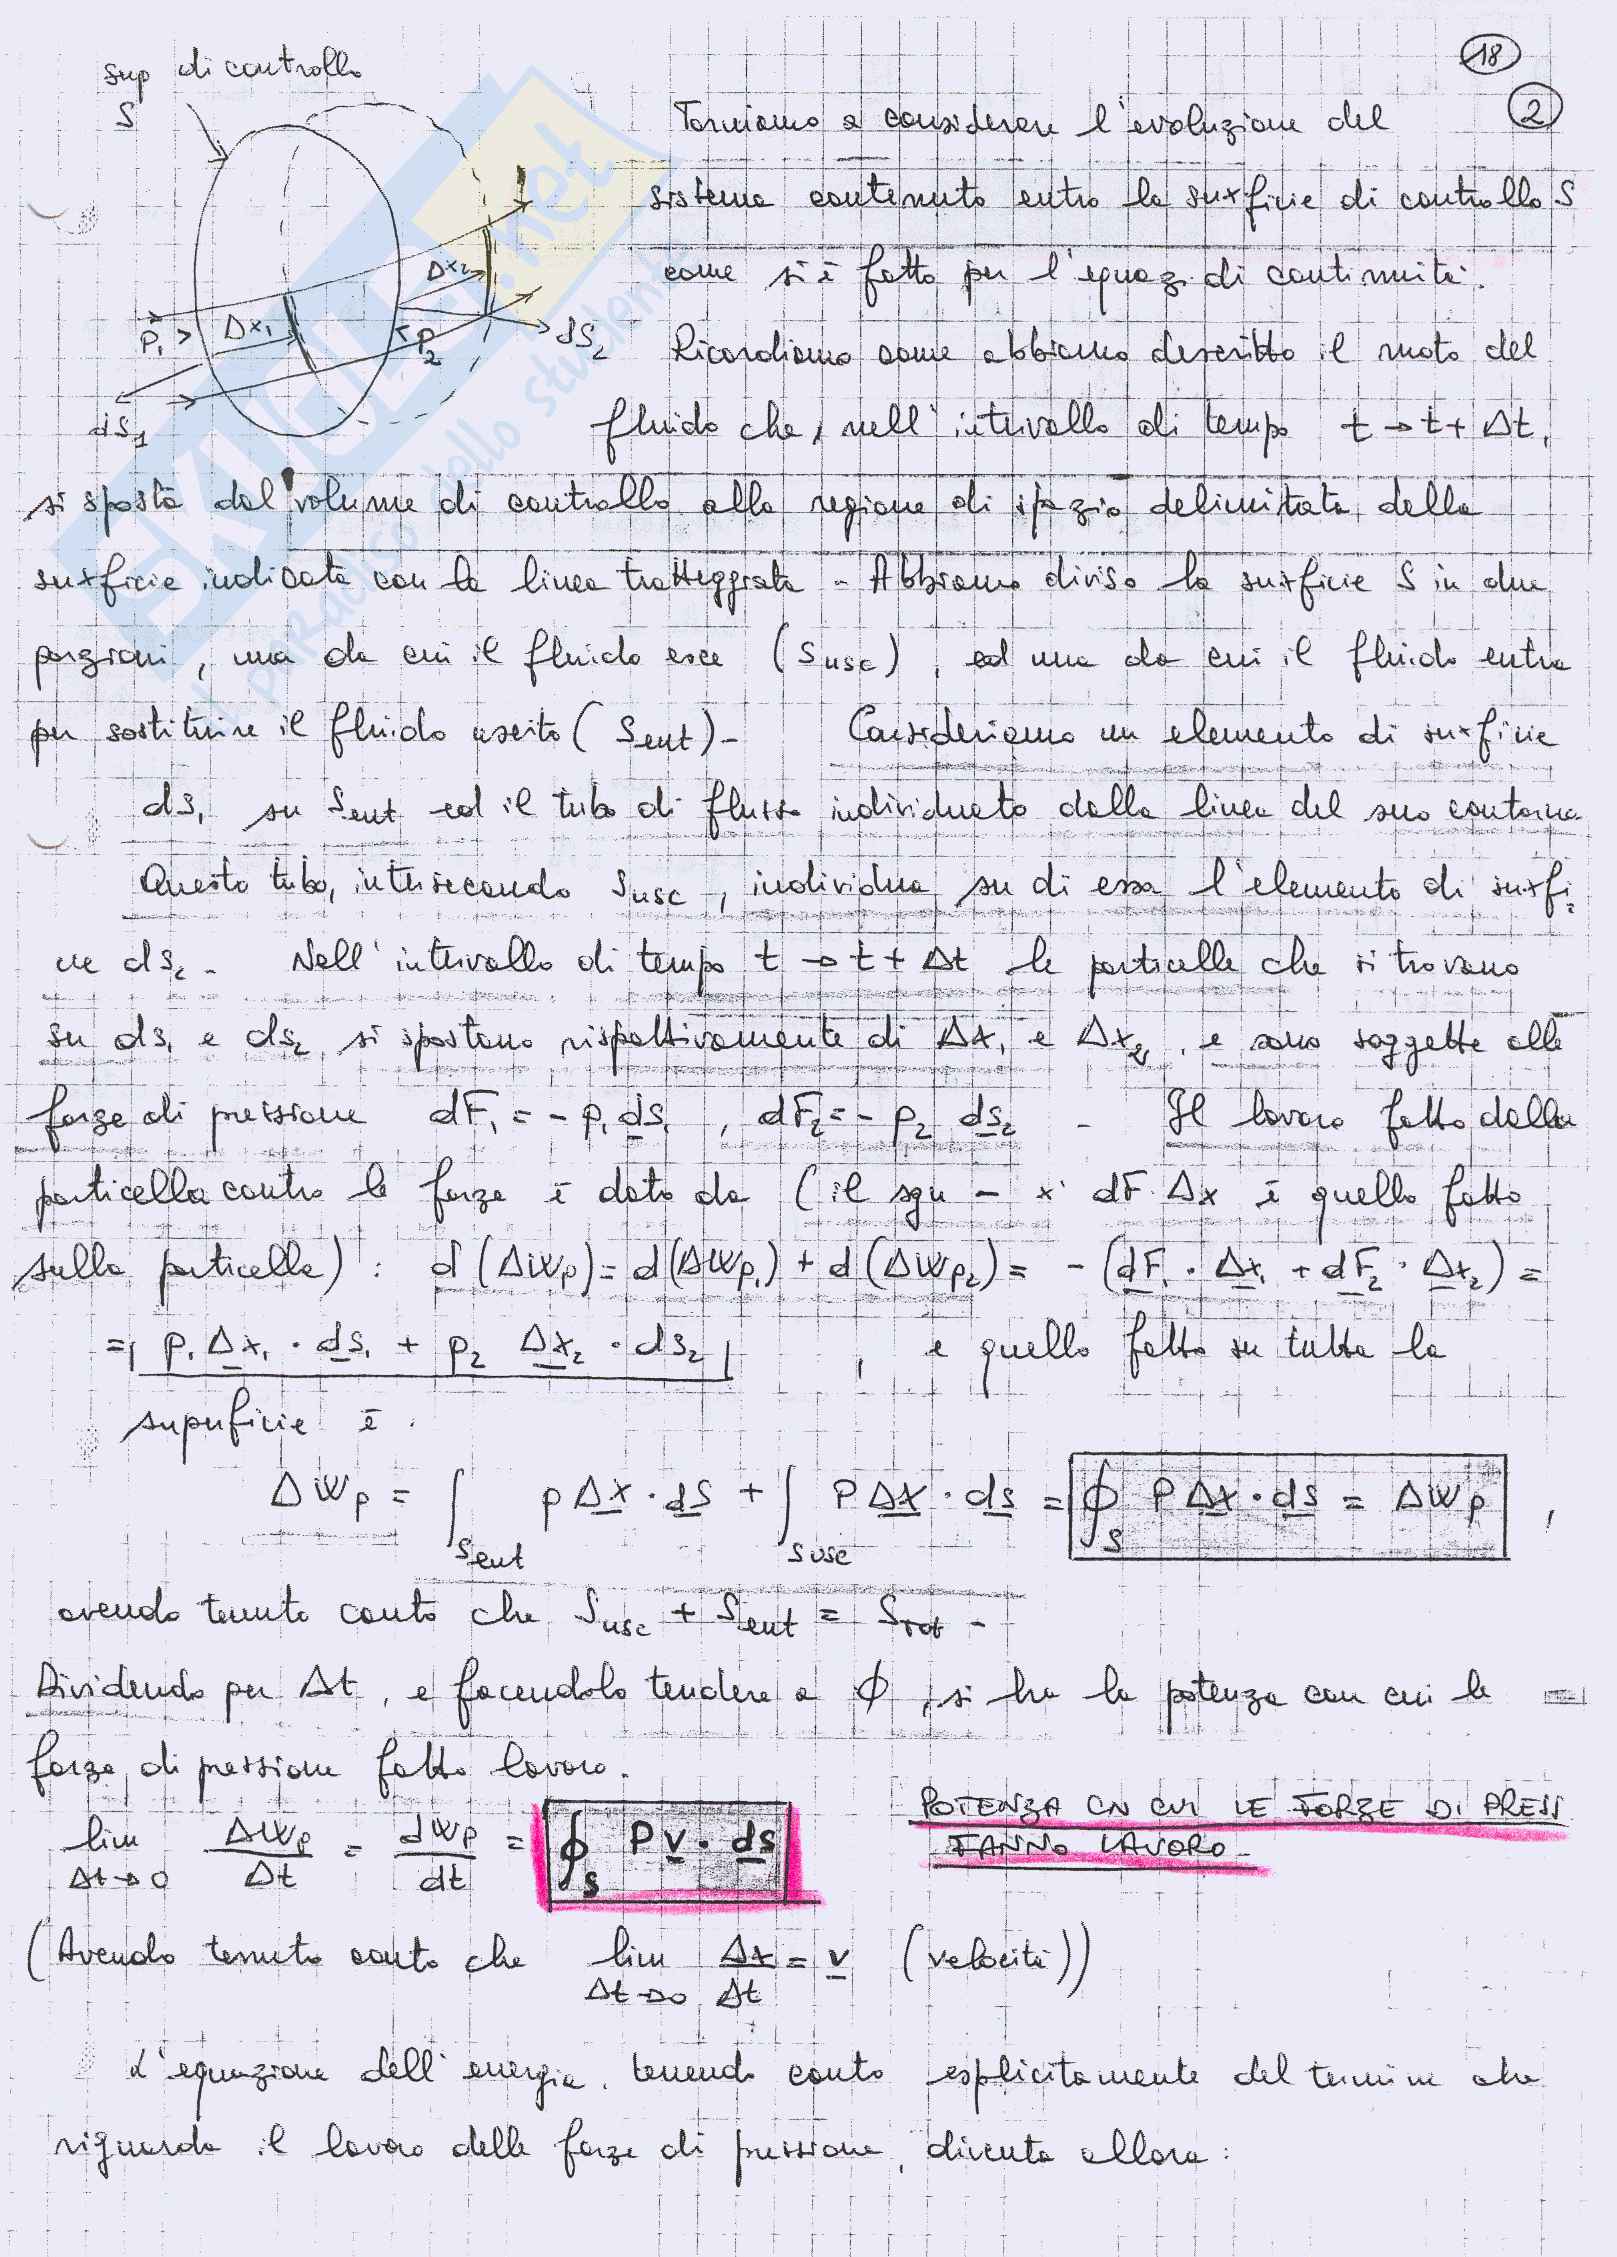 18
2
sup di controllo
S
P1
Δx1
Δx2
P2
dS2
dS1
Torniamo a considerare l'evoluzione del
sistema contenuto entro la suxficie di controllo S
come si è fatto per l'equaz. di continuità.
Ricordiamo come abbiamo descritto il moto del
fluido che, nell'intervallo di tempo t → t + Δt,
si sposta dal volume di controllo alla regione di spazio delimitata dalla
suxficie indicata con la linea tratteggiata - Abbiamo diviso la suxficie S in due
porzioni, una da cui il fluido esce (Susc), ed una da cui il fluido entra
per sostituire il fluido uscito (Sent) - Consideriamo un elemento di suxficie
dS1 su Sent ed il tubo di flusso individuato dalla linea del suo contorno
Questo tubo, intersecando Susc, individua su di essa l'elemento di suxfi
cie dS2 - Nell'intervallo di tempo t → t + Δt le particelle che si trovano
su dS1 e dS2 si spostano rispettivamente di Δx1 e Δx2, e sono soggette alle
forze di pressione dF1 = - p1 dS1, dF2 = - p2 dS2 - Il lavoro fatto dalla
particella contro le forze è dato da (il sgn - x' dF · Δx è quello fatto
sulla particella): d(ΔWp) = d(ΔWp1) + d(ΔWp2) = - (dF1 · Δx1 + dF2 · Δx2) =
= p1 Δx1 · dS1 + p2 Δx2 · dS2 , e quello fatto su tutta la
superficie è.
ΔWp = ∫Sent p Δx · dS + ∫Susc p Δx · dS = ∮S p Δx · dS = ΔWp ,
avendo tenuto conto che Susc + Sent = Stot -
Dividendo per Δt, e facendolo tendere a ϕ, si ha la potenza con cui le
forze di pressione fatto lavoro.
lim Δt→0 ΔWp/Δt = dWp/dt = ∮S p v · dS
POTENZA CN CUI LE FORZE DI PRESS
FANNO LAVORO -
(Avendo tenuto conto che lim Δt→0 Δx/Δt = v (velocità))
L'equazione dell'energia, tenendo conto esplicitamente del termine che
riguarda il lavoro delle forze di pressione, diventa allora:
SKUOLA.net
il paradiso dello studente